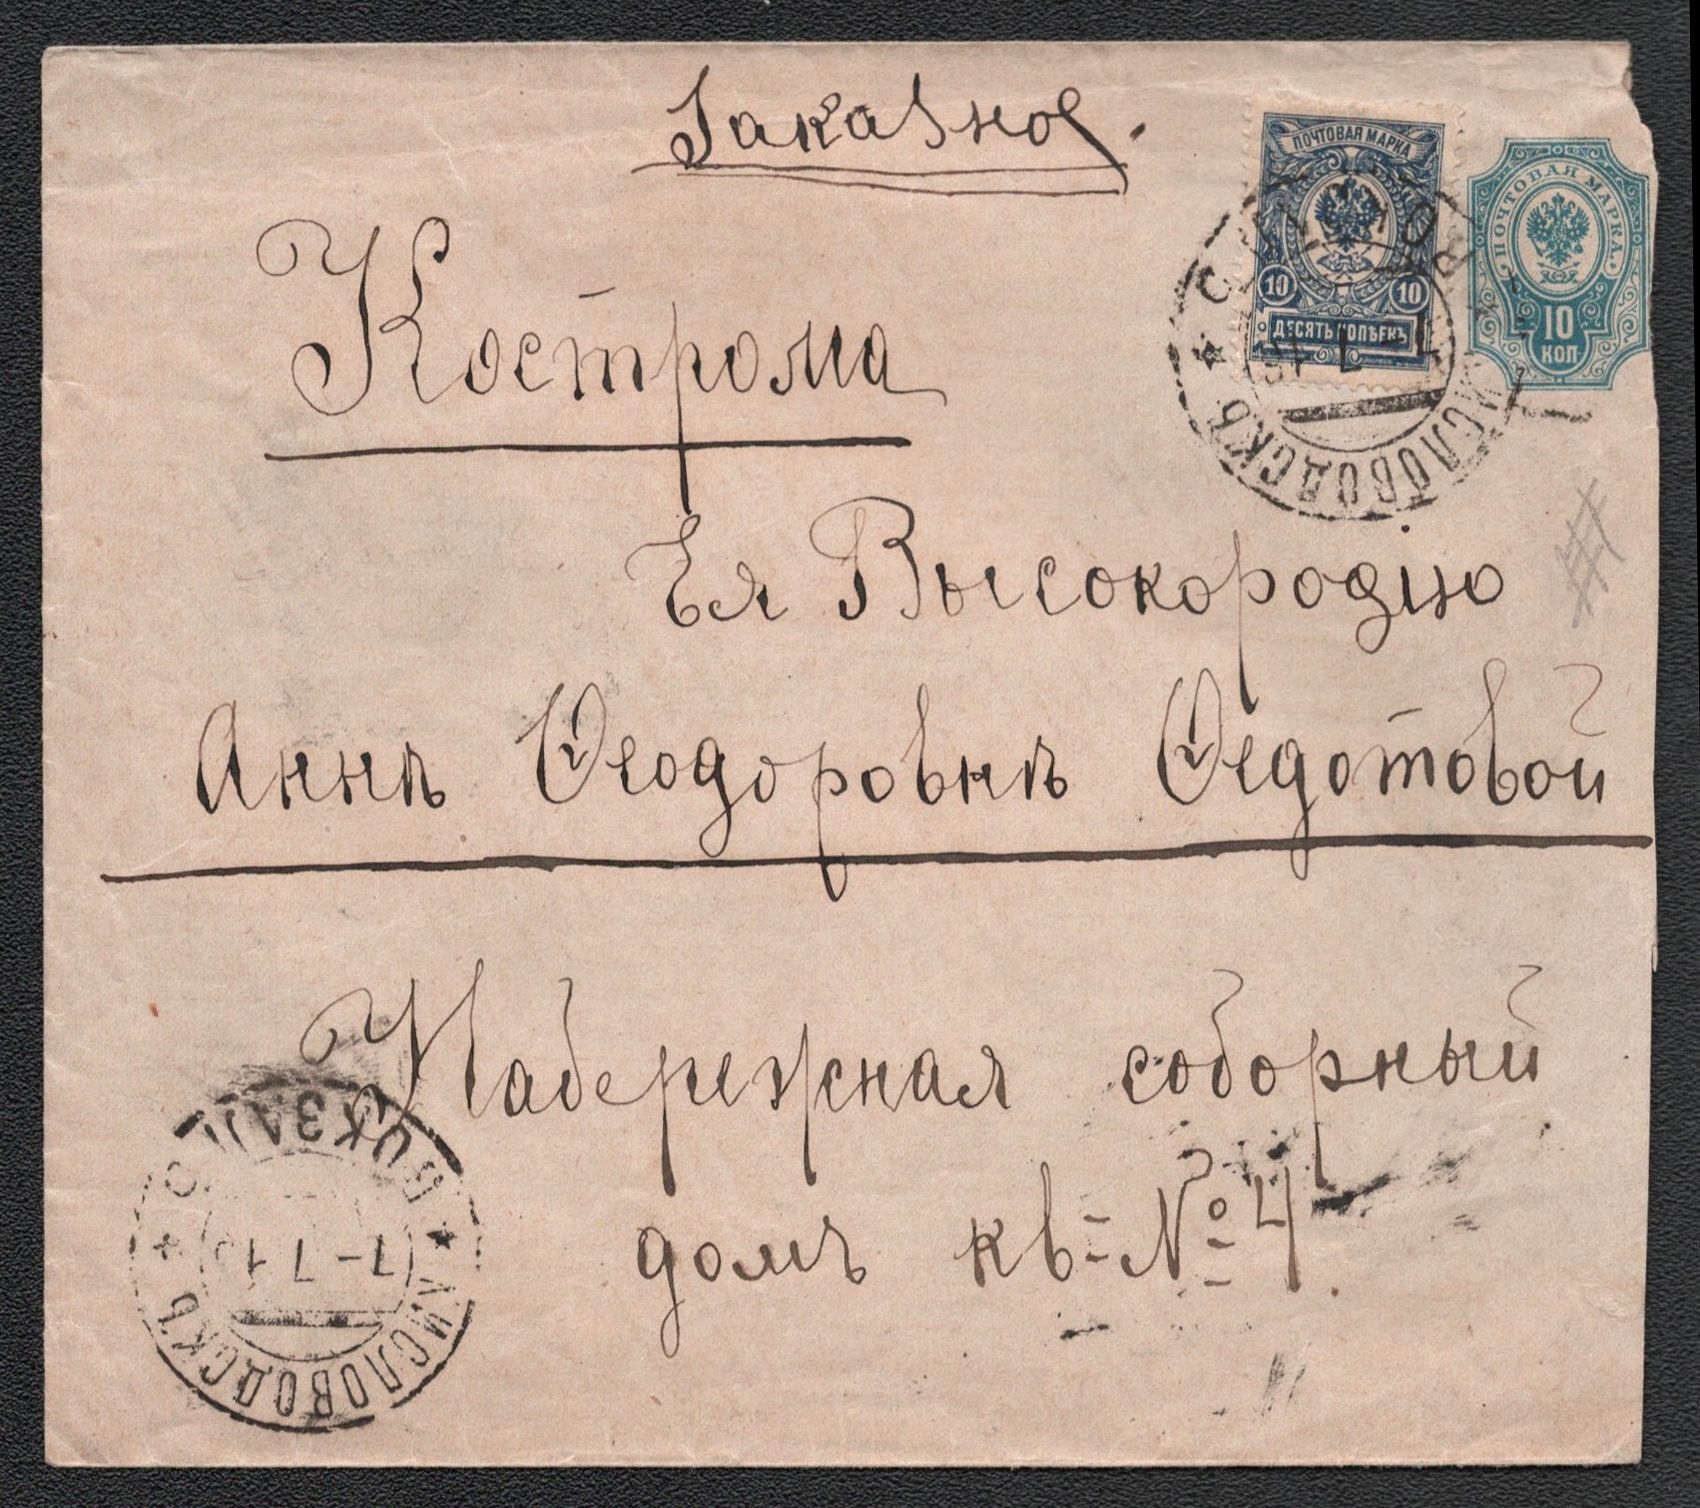 Заказное.
ПОЧТОВАЯ МАРКА
10 10
ДЕСЯТЬ КОПѢЕКЪ
ПОЧТОВАЯ МАРКА
10
КОП
КИСЛОВОДСКЪ
Кострома
Ея Высокородію
Аннѣ Ѳеодоровнѣ Ѳедотовой
Набережная соборный
домъ кв. № 4.
ВОКЗАЛ
КИСЛОВОДСКЪ